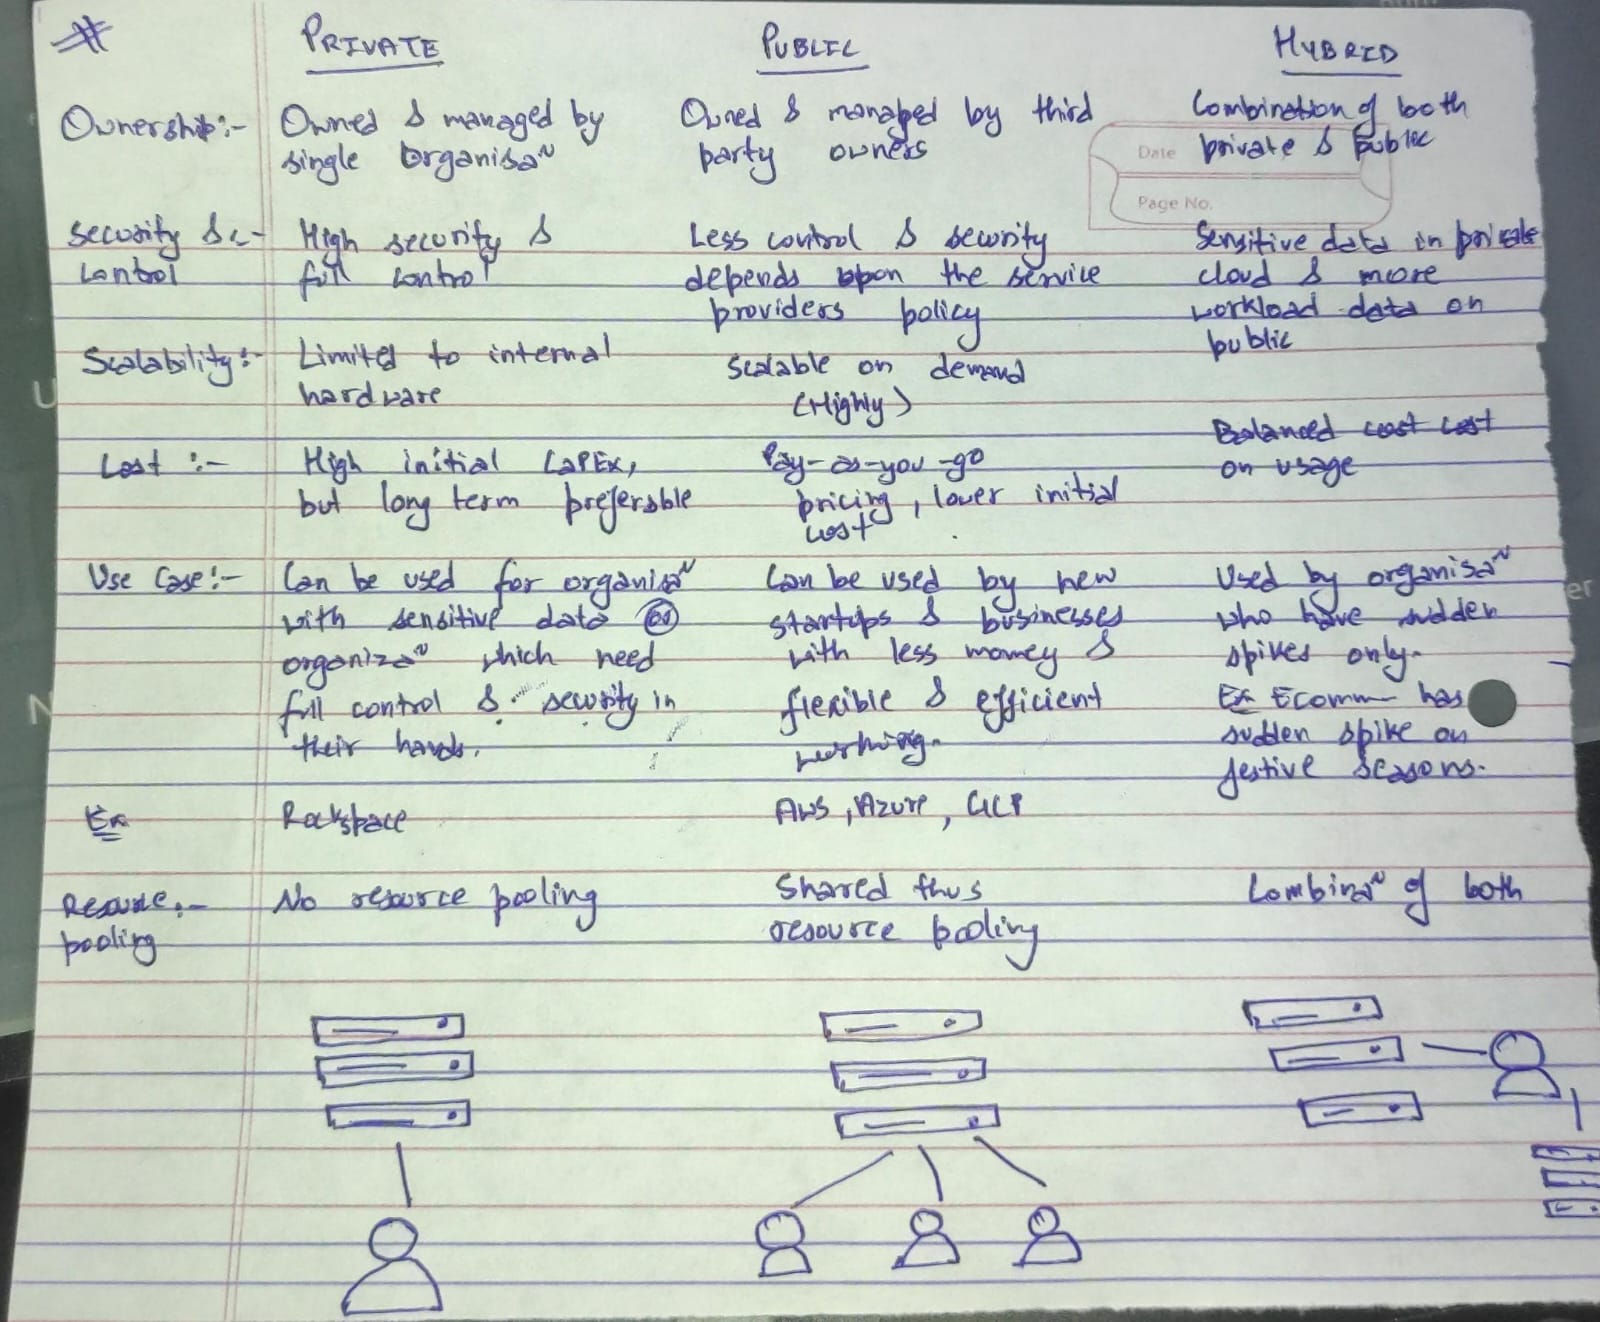 #
PRIVATE PUBLIC HYBRID
Ownership:- Owned & managed by single organisaⁿ
Owned & managed by third party owners
Combination of both private & public
Date
Page No.
Security &:- control
High security & full control
Less control & security depends upon the service providers policy
Sensitive data in private cloud & more workload data on public
Scalability:- Limited to internal hardware
Scalable on demand (Highly)
Cost :- High initial CaPEx, but long term preferable
Pay-as-you-go pricing, lower initial cost
Balanced cost cost on usage
Use Case:- Can be used for organisaⁿ with sensitive data or organizaⁿ which need full control & security in their hands.
Can be used by new startups & businesses with less money & flexible & efficient working.
Used by organisaⁿ who have sudden spikes only.
Ex Ecomm has sudden spike on festive seasons.
Ex Rackspace
AWS, Azure, GCP
Resource:- pooling
No resource pooling
Shared thus resource pooling
Combinaⁿ of both